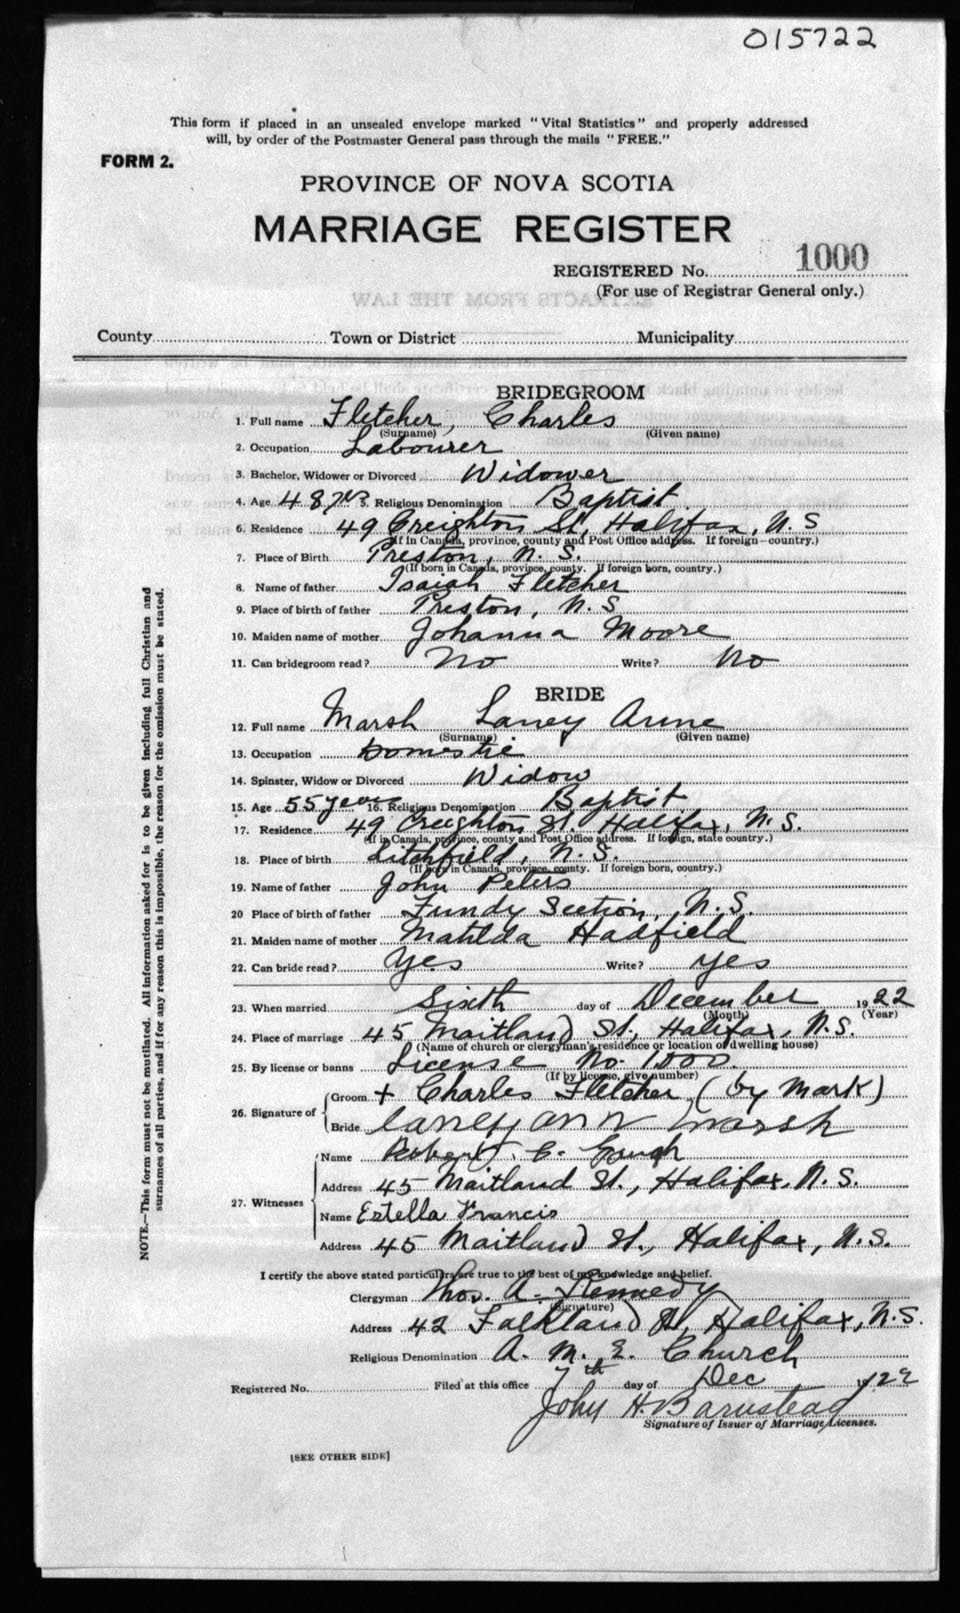 015722
This form if placed in an unsealed envelope marked "Vital Statistics" and properly addressed
will, by order of the Postmaster General pass through the mails "FREE."
FORM 2.
PROVINCE OF NOVA SCOTIA
MARRIAGE REGISTER
REGISTERED No. 1000
(For use of Registrar General only.)
County Town or District Municipality
BRIDEGROOM
1. Full name Fletcher, Charles
(Surname) (Given name)
2. Occupation Labourer
3. Bachelor, Widower or Divorced Widower
4. Age 48 yrs 5. Religious Denomination Baptist
6. Residence 49 Creighton St, Halifax, N.S
(If in Canada, province, county and Post Office address. If foreign—country.)
7. Place of Birth Preston, N. S.
(If born in Canada, province, county. If foreign born, country.)
8. Name of father Isaiah Fletcher
9. Place of birth of father Preston, N. S
10. Maiden name of mother Johanna Moore
11. Can bridegroom read? No Write? No
BRIDE
12. Full name Marsh Laney Anne
(Surname) (Given name)
13. Occupation Domestic
14. Spinster, Widow or Divorced Widow
15. Age 55 years 16. Religious Denomination Baptist
17. Residence 49 Creighton St. Halifax, N. S.
(If in Canada, province, county and Post Office address. If foreign, state country.)
18. Place of birth Litchfield, N. S.
(If born in Canada, province, county. If foreign born, country.)
19. Name of father John Peters
20 Place of birth of father Fundy Section, N. S.
21. Maiden name of mother Matilda Hadfield
22. Can bride read? Yes Write? Yes
23. When married Sixth day of December 1922
(Month) (Year)
24. Place of marriage 45 Maitland St., Halifax, N.S.
(Name of church or clergyman's residence or location of dwelling house)
25. By license or banns License No. 1000.
(If by license, give number)
26. Signature of Groom + Charles Fletcher (by Mark)
Bride laney ann marsh
27. Witnesses Name Robert C. Gough
Address 45 Maitland St., Halifax, N. S.
Name Estella Francis
Address 45 Maitland St., Halifax, N. S.
I certify the above stated particulars are true to the best of my knowledge and belief.
Clergyman Thos. A. Kennedy
(Signature)
Address 42 Falkland St, Halifax, N.S.
Religious Denomination A. M. E. Church
Registered No. Filed at this office 7th day of Dec 1922
John H. Barnstead
Signature of Issuer of Marriage Licenses.
[SEE OTHER SIDE]
NOTE.—This form must not be mutilated. All information asked for is to be given including full Christian and
surnames of all parties, and if for any reason this is impossible, the reason for the omission must be stated.